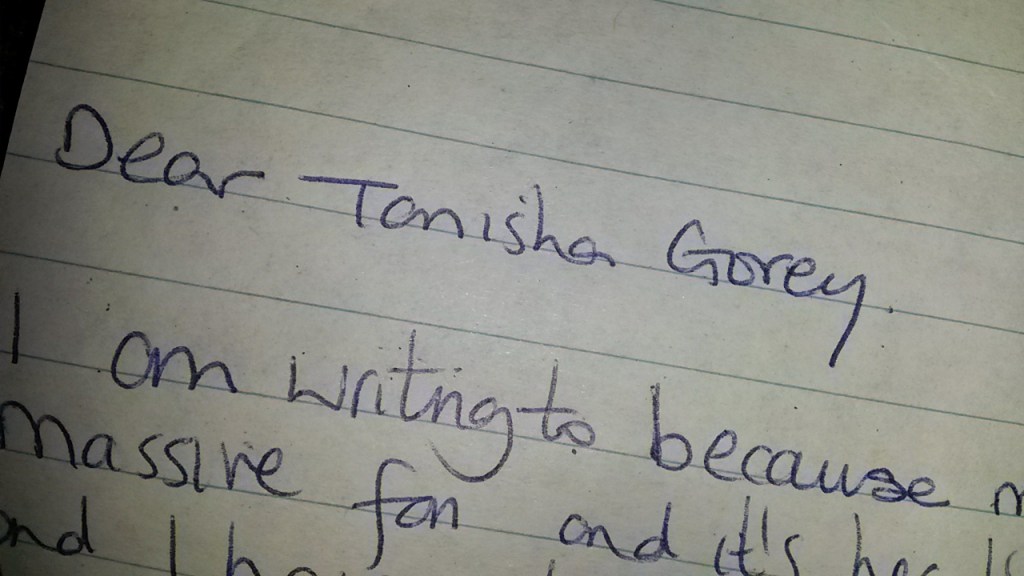 Dear Tanisha Gorey.
I am writing to because
massive fan and it's her
and I